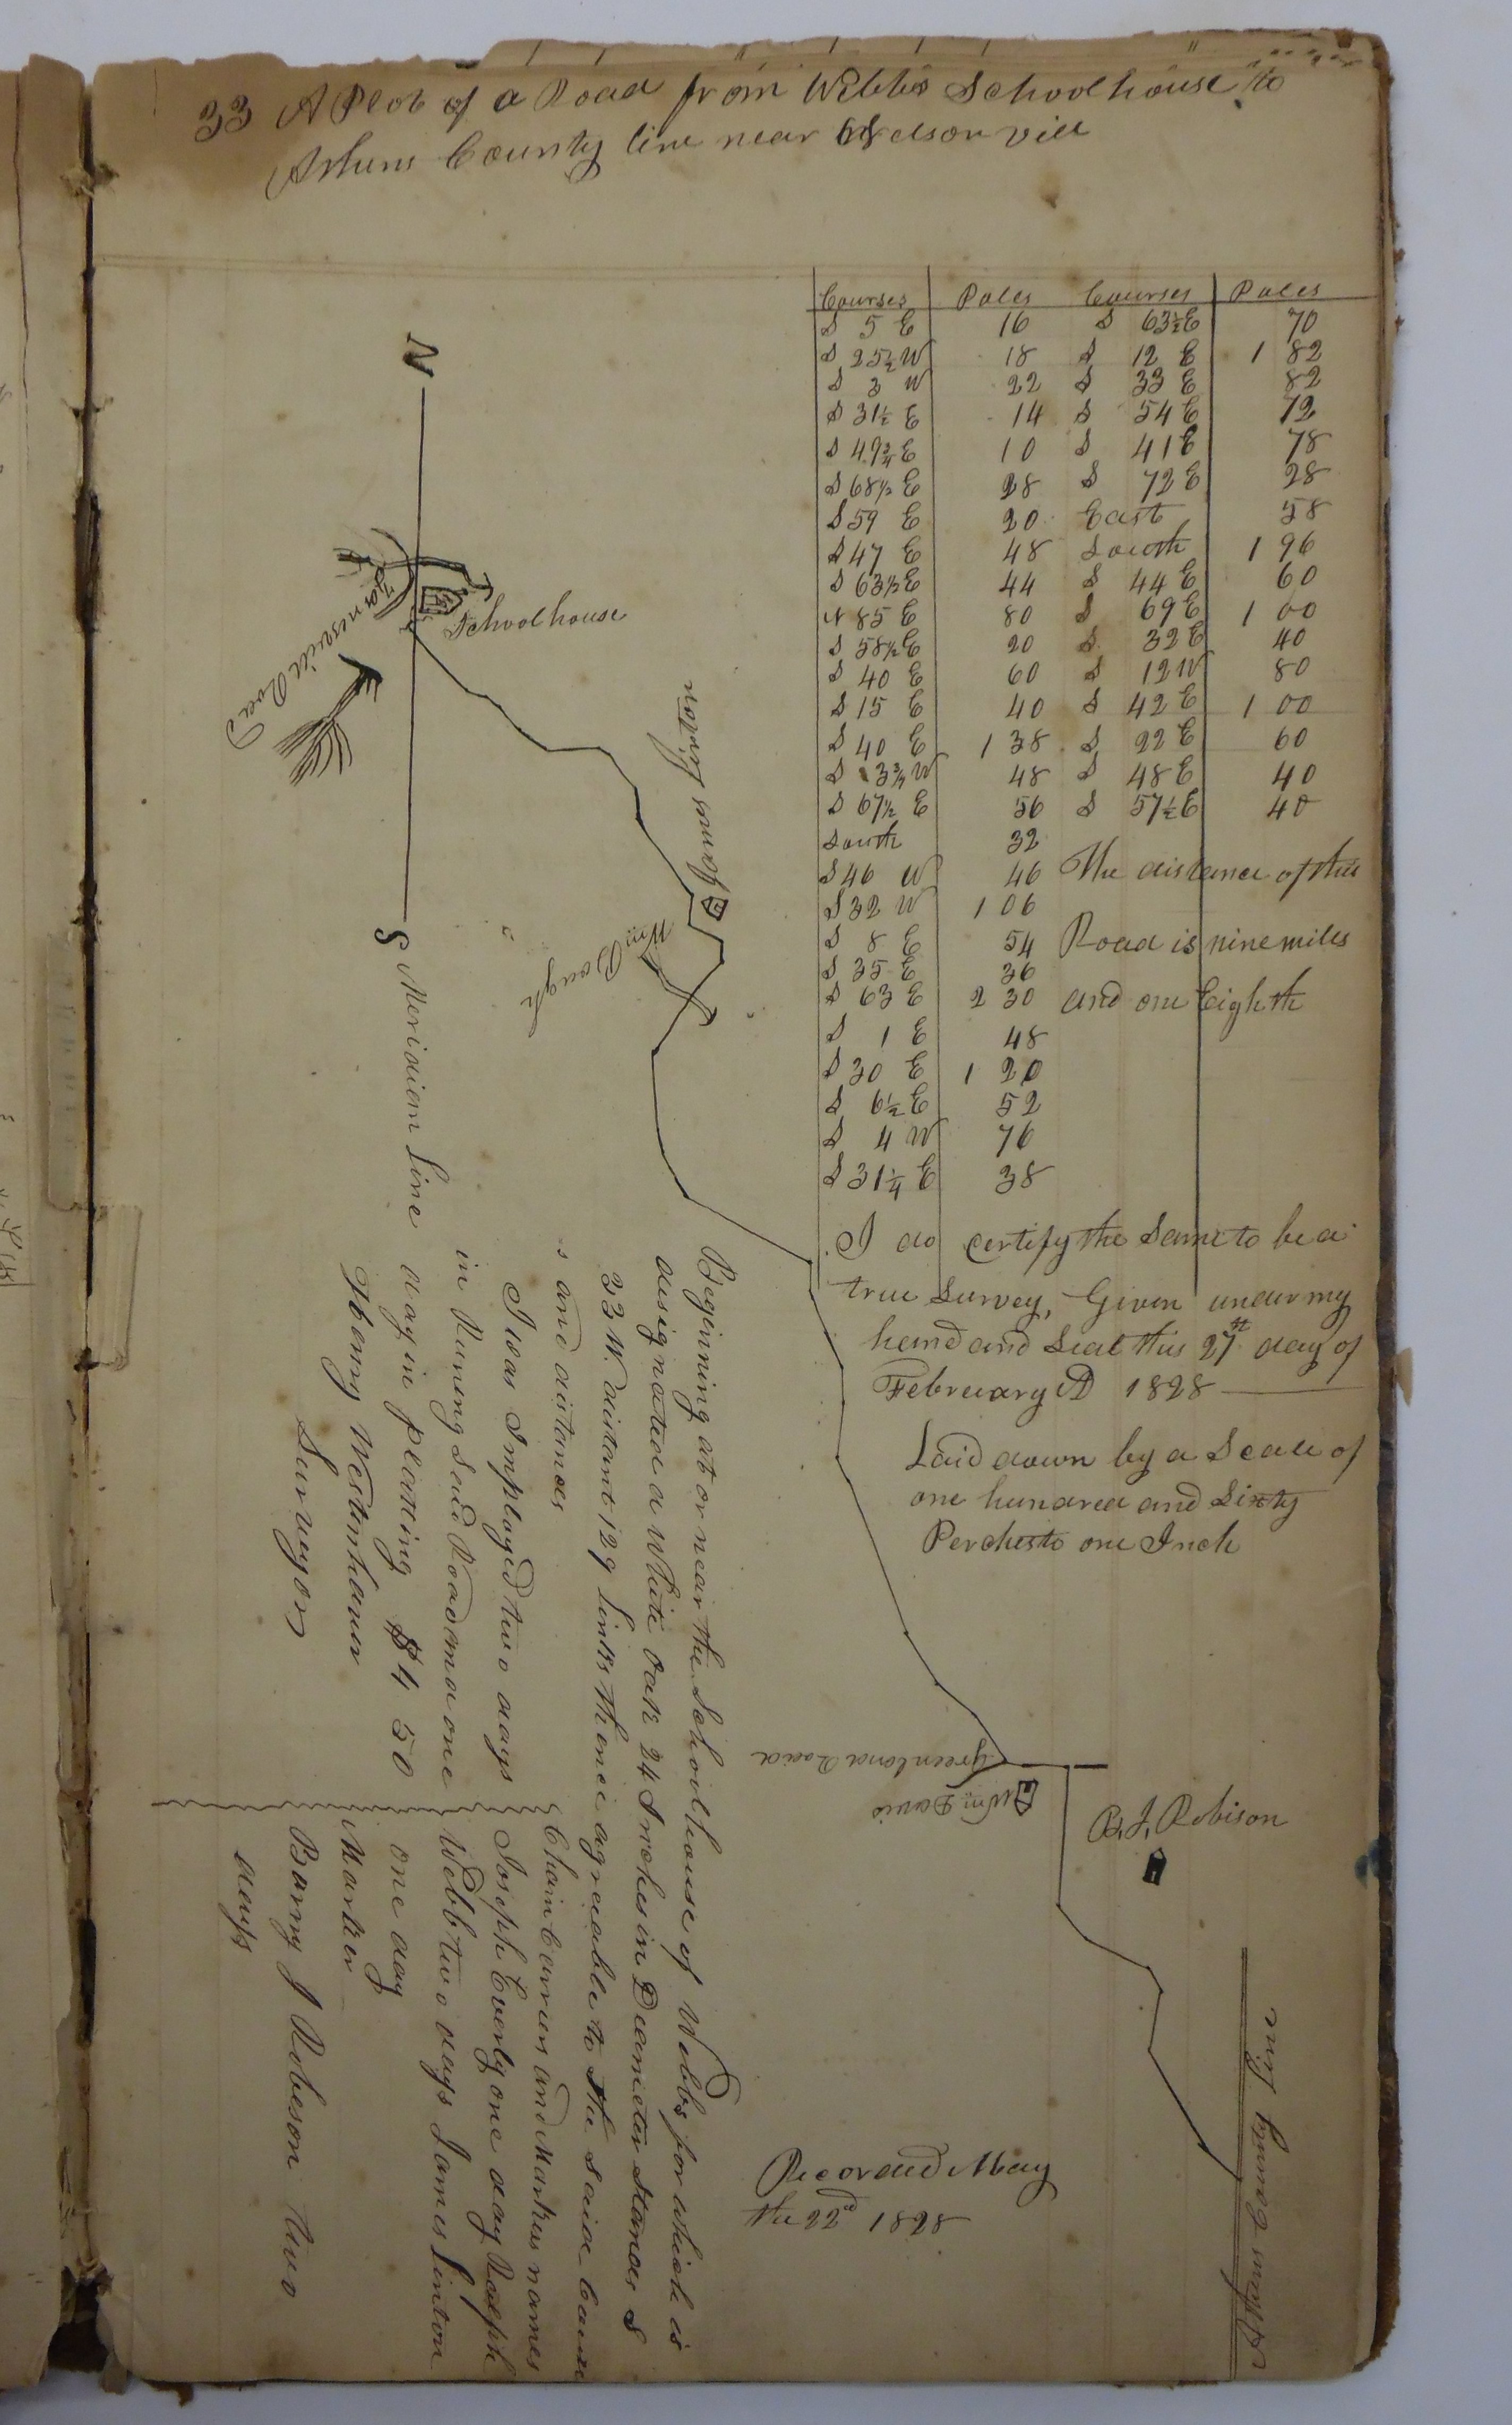 33 A Plot of a Road from Webbs Schoolhouse to
Athens County line near Nelsonvill
Courses Poles Courses Poles
S 5 E 16 S 63½ E 70
S 25½ W 18 S 12 E 1 82
S 3 W 22 S 33 E 82
S 31½ E 14 S 54 E 72
S 49¾ E 10 S 41 E 78
S 68½ E 28 S 72 E 28
S 59 E 20 East 58
S 47 E 48 South 1 96
S 63½ E 44 S 44 E 60
N 85 E 80 S 69 E 1 00
S 58½ E 20 S 32 E 40
S 40 E 60 S 12 W 80
S 15 E 40 S 42 E 1 00
S 40 E 1 38 S 22 E 60
S 3¾ W 48 S 48 E 40
S 67½ E 56 S 57½ E 40
South 32
S 46 W 46 The distance of this
S 32 W 1 06
S 8 E 54 Road is nine miles
S 35 E 36
S 63 E 2 30 and one Eighth
S 1 E 48
S 30 E 1 20
S 6½ E 52
S 4 W 76
S 31¼ E 38
I do certify the Same to be a
true Survey, Given under my
hand and Seal this 27st day of
February AD 1828
Laid down by a Scale of
one hundred and Sixty
Perches to one Inch
N
Schoolhouse
Zanesvill Road
James Linton
Wm Baugh
S Meridien Line
Greenland Road
Wm Davis
B. J. Robison
Athens County Line
Beginning at or near the Schoolhouse of Webbs for which is
designated a White Oak 24 Inches in Diameter Stands S
33 W. distant 129 Links Thence agreable to the Said Course
s and distances
I was Imployed two days
in Runing Said Road and one
day in platting $4 50
Henry Westenhaver
Surveyor
Chain Carriers and Markers names
Joseph Everly one day Rolph
Webb two days James Linton
one day
Marker
Barny J Robeson two
days
Recorded May
the 22d 1828